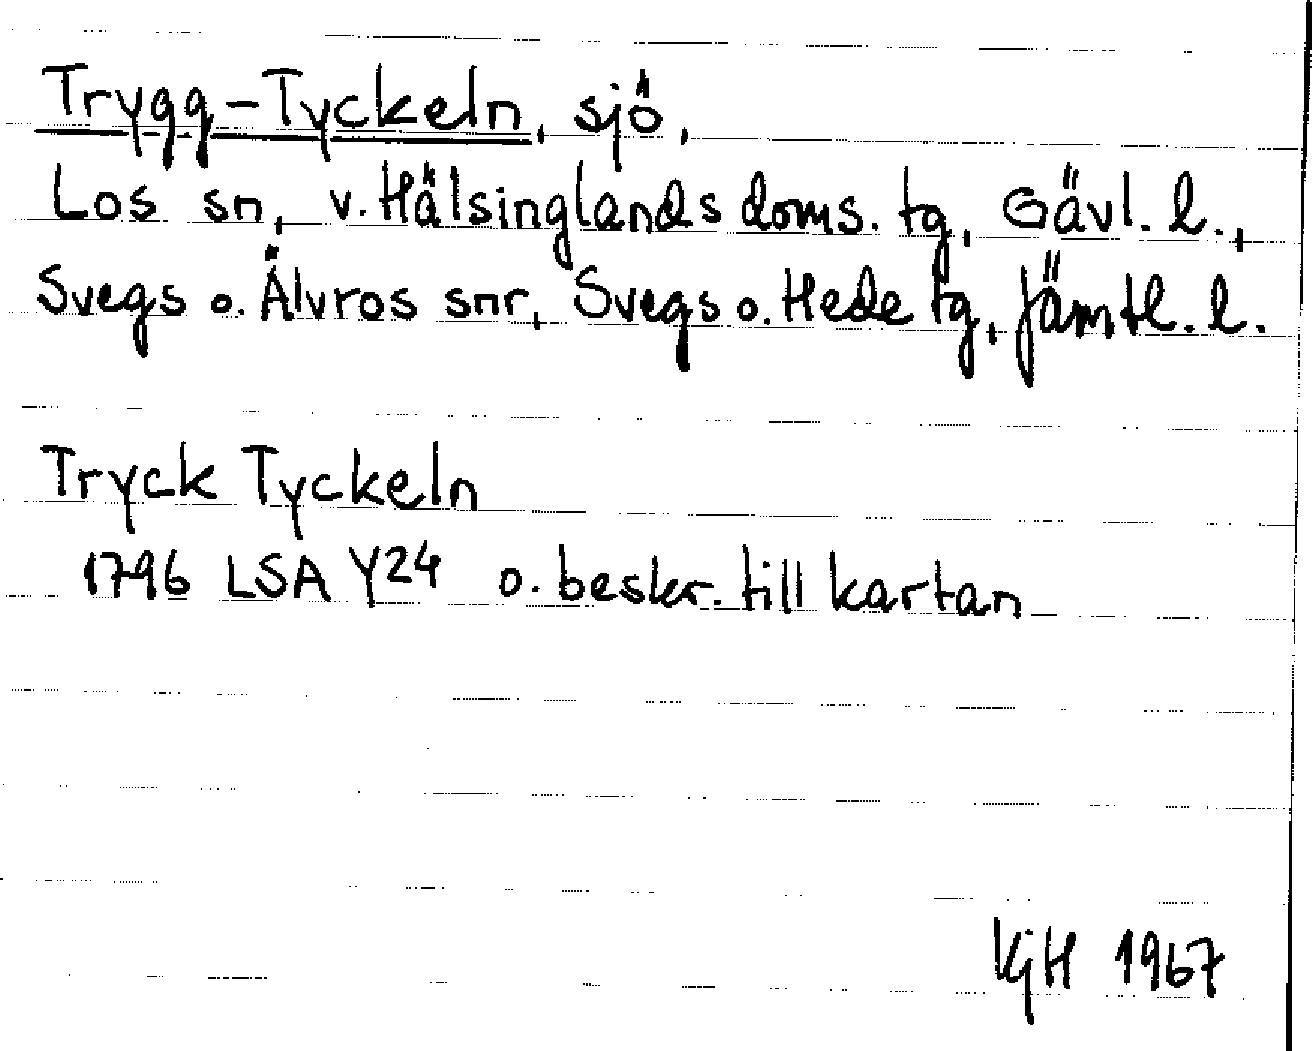 Trygg-Tyckeln, sjö,
Los sn, v. Hälsinglands doms. tg, Gävl. l.,
Svegs o. Älvros snr, Svegs o. Hede tg, Jämtl. l.
Tryck Tyckeln
1796 LSA Y24 o. beskr. till kartan
VjH 1967